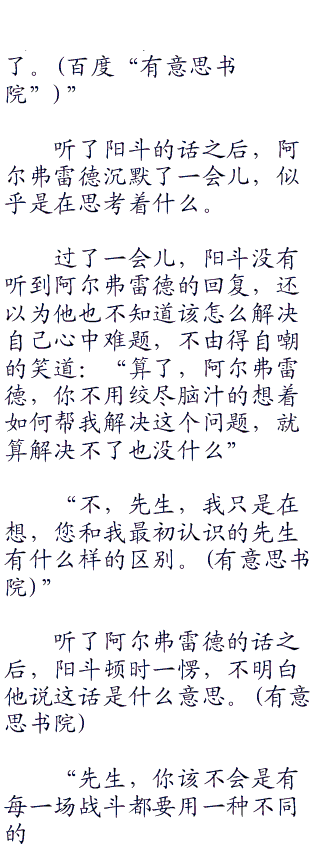 了。(百度“有意思书
院”)”
听了阳斗的话之后，阿
尔弗雷德沉默了一会儿，似
乎是在思考着什么。
过了一会儿，阳斗没有
听到阿尔弗雷德的回复，还
以为他也不知道该怎么解决
自己心中难题，不由得自嘲
的笑道：“算了，阿尔弗雷
德，你不用绞尽脑汁的想着
如何帮我解决这个问题，就
算解决不了也没什么”
“不，先生，我只是在
想，您和我最初认识的先生
有什么样的区别。(有意思书
院)”
听了阿尔弗雷德的话之
后，阳斗顿时一愣，不明白
他说这话是什么意思。(有意
思书院)
“先生，你该不会是有
每一场战斗都要用一种不同
的